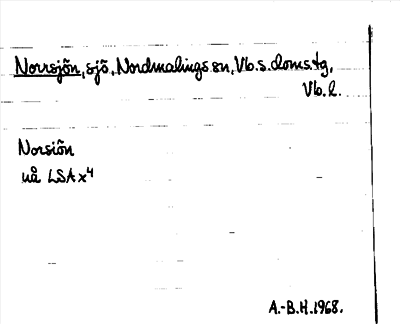 Norrsjön, sjö, Nordmalings sn, Vb.s.doms.tg,
Vb.l.
Norsiön
uå LSA x4
A.-B.H.1968.